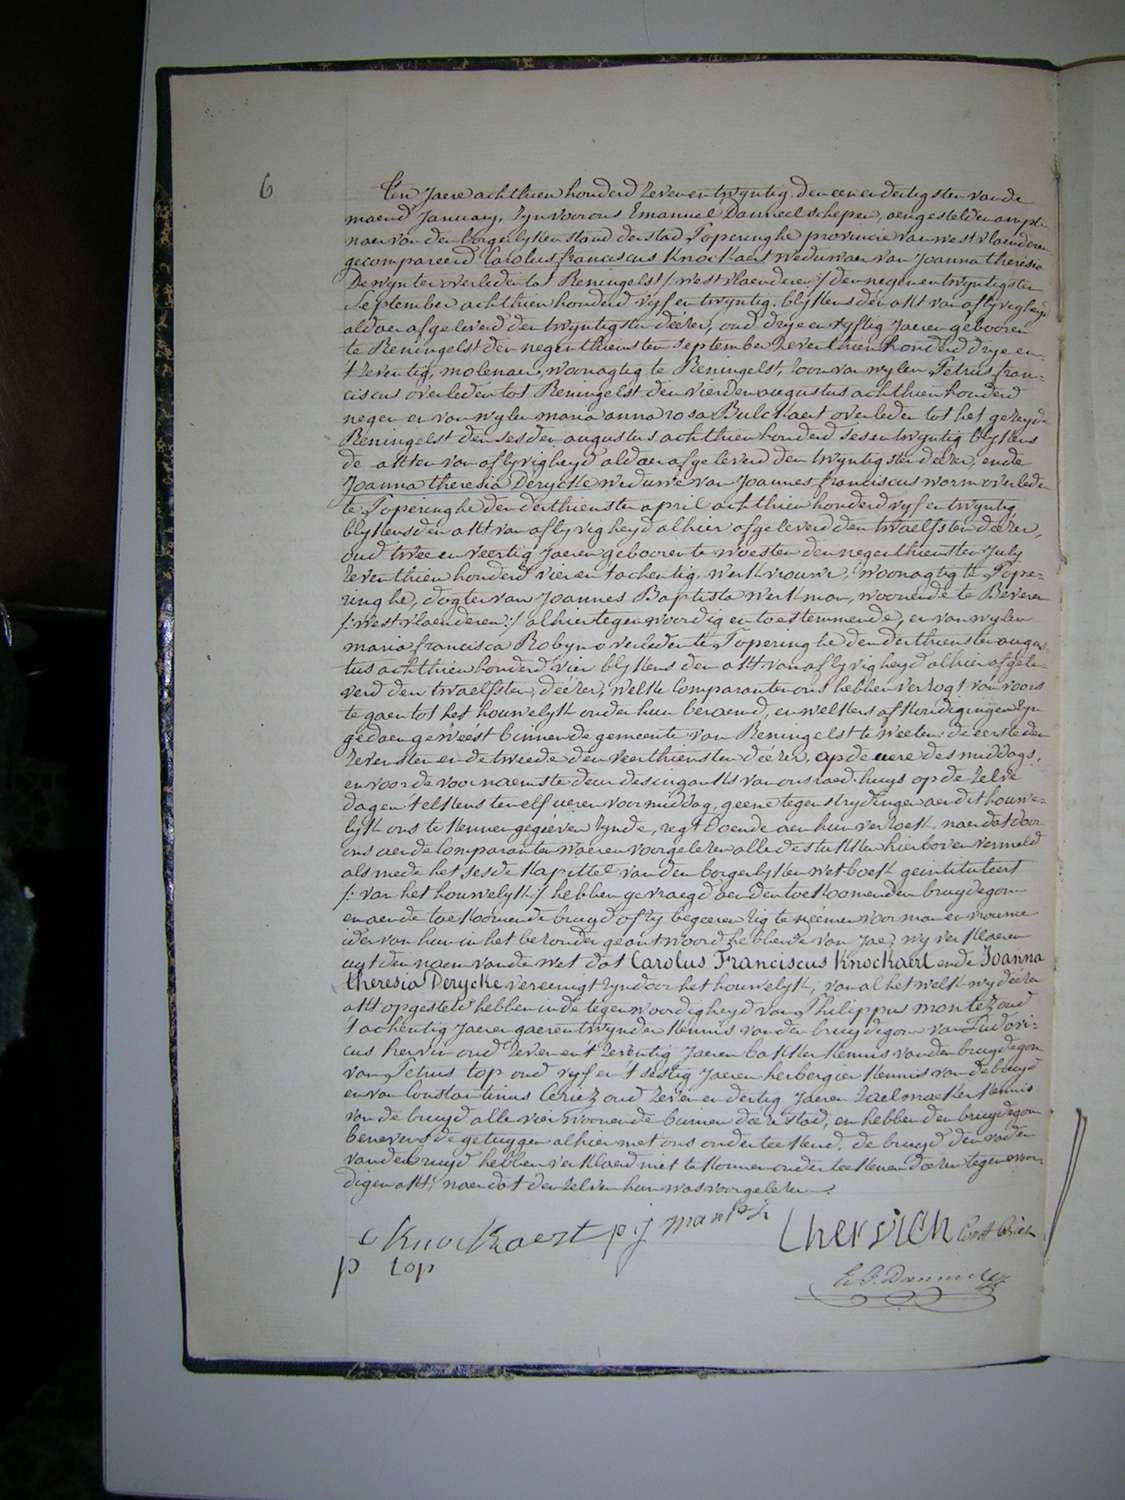 6
Ten Jaere achthien honderd zeven en twyntig. den een en dertigsten van de
maend January, zyn voor ons Emanuel Danneel schepen, aengestelden ampte-
naer van den borgerlyken stand der stad Poperinghe provincie van west vlaenderen
gecompareerd Carolus franciscus Knockaert weduwaer van Joanna theresia
Dewynter overleden tot Reningelst /: west vlaenderen :/ den negen en twyntigsten
September achthien honderd vyf en twyntig. blykens den akt van aflyvigheyd
aldaer afgeleverd den twyntigsten deézer, oud drye en vyftig Jaeren gebooren
te Reningelst den negenthiensten September zeventhien honderd drye en
t'zeventig, molenaer, woonagtig te Reningelst, zoon van wylen Petrus fran-
ciscus overleden tot Reningelst den vierden augustus achthien honderd
negen en van wylen maria anna rosa Bulckaert overleden tot het gezeyde
Reningelst den sesden augustus achthien honderd ses en twyntig blykens
de akten van aflyvigheyd aldaer afgeleverd den twyntigsten deézer, ende
Joanna theresia Derycke weduwe van Joannes franciscus worm overleden
te Poperinghe den derthiensten april achthien honderd vyf en twyntig
blykens den akt van aflyvigheyd alhier afgeleverd den twaelfsten deézer,
oud twee en veertig Jaeren gebooren te woesten den negenthiensten July
zeventhien honderd vier en tachentig. werkvrouwe, woonagtig te Pope-
ringhe, dogter van Joannes Baptista werkman, woonende te Beveren
/: west vlaenderen :/ alhier tegenwoordig en toestemmende, en van wylen
maria francisca Robyn overleden te Poperinghe den derthiensten augus-
tus achthien honderd vier blykens den akt van aflyvigheyd alhier afgele-
verd den twaelfsten, deézer, welke Comparanten ons hebben verzogt van voorts
te gaen tot het houwelyk onder hun beraemd, en welkers afkondigingen zyn
gedaen geweést binnen de gemeente van Reningelst te weeten: de eerste den
zevensten en de tweede den veerthiensten deézer, op de uere des middags,
en voor de voornaemste deur des ingankts van ons raed-huys op de zelve
dagen telkens ten elf ueren voormiddag, geene tegenstrydingen aen dit houwe-
lyk ons te kennen gegeéven zynde, regt doende aen hun verzoek, naer dat door
ons aen de Comparanten waeren voorgelezen alle de stukken hier boven vermeld
als mede het sesde kapittel van den borgerlyken wetboek geintituleert
/: van het houwelyk :/ hebben gevraegd aen den toekoomenden bruydegom
en aen de toekoomende bruyd of zy begeeren zig te neémen voor man en vrouwe
ider van hun in het bezonder geantwoord hebbende van Jae, wy verklaeren
uyt den naem van de wet dat Carolus Franciscus Knockaert ende Joanna
theresia Derycke vereenigt zyn door het houwelyk; van al het welk wy deézen
akt opgesteld hebben in de tegenwoordigheyd van Philippus montez oud
tachentig Jaeren gaerentwynder kennis van den bruydegom van Ludovi-
cus hervin oud zeven en t'zeventig Jaeren bakker kennis van den bruydegom
van Petrus top oud vyf en t'sestig Jaeren herbergier kennis van de bruyd
en van Constantinus Cériez oud zeven en dertig Jaeren zaelmaeker kennis
van de bruyd alle vier woonende binnen deéze stad, en hebben den bruydegom
benevens de getuygen alhier met ons onderteekend, de bruyd den vader
van de bruyd hebben verklaerd niet te konnen onderteekenen deézen tegenwoor-
digen akt, naer dat den zelven hun was voorgelezen.
c Knockaert p j
L hervien
p top